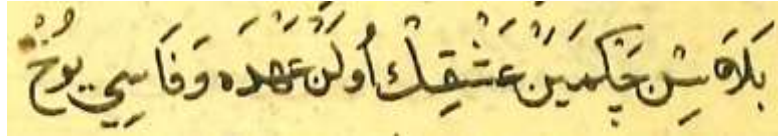 بَلَاسِنْ چَكمَيَنْ عَشْقِكْ أُولَنْ عَهْدَه وَفَاسِي يُوخْ